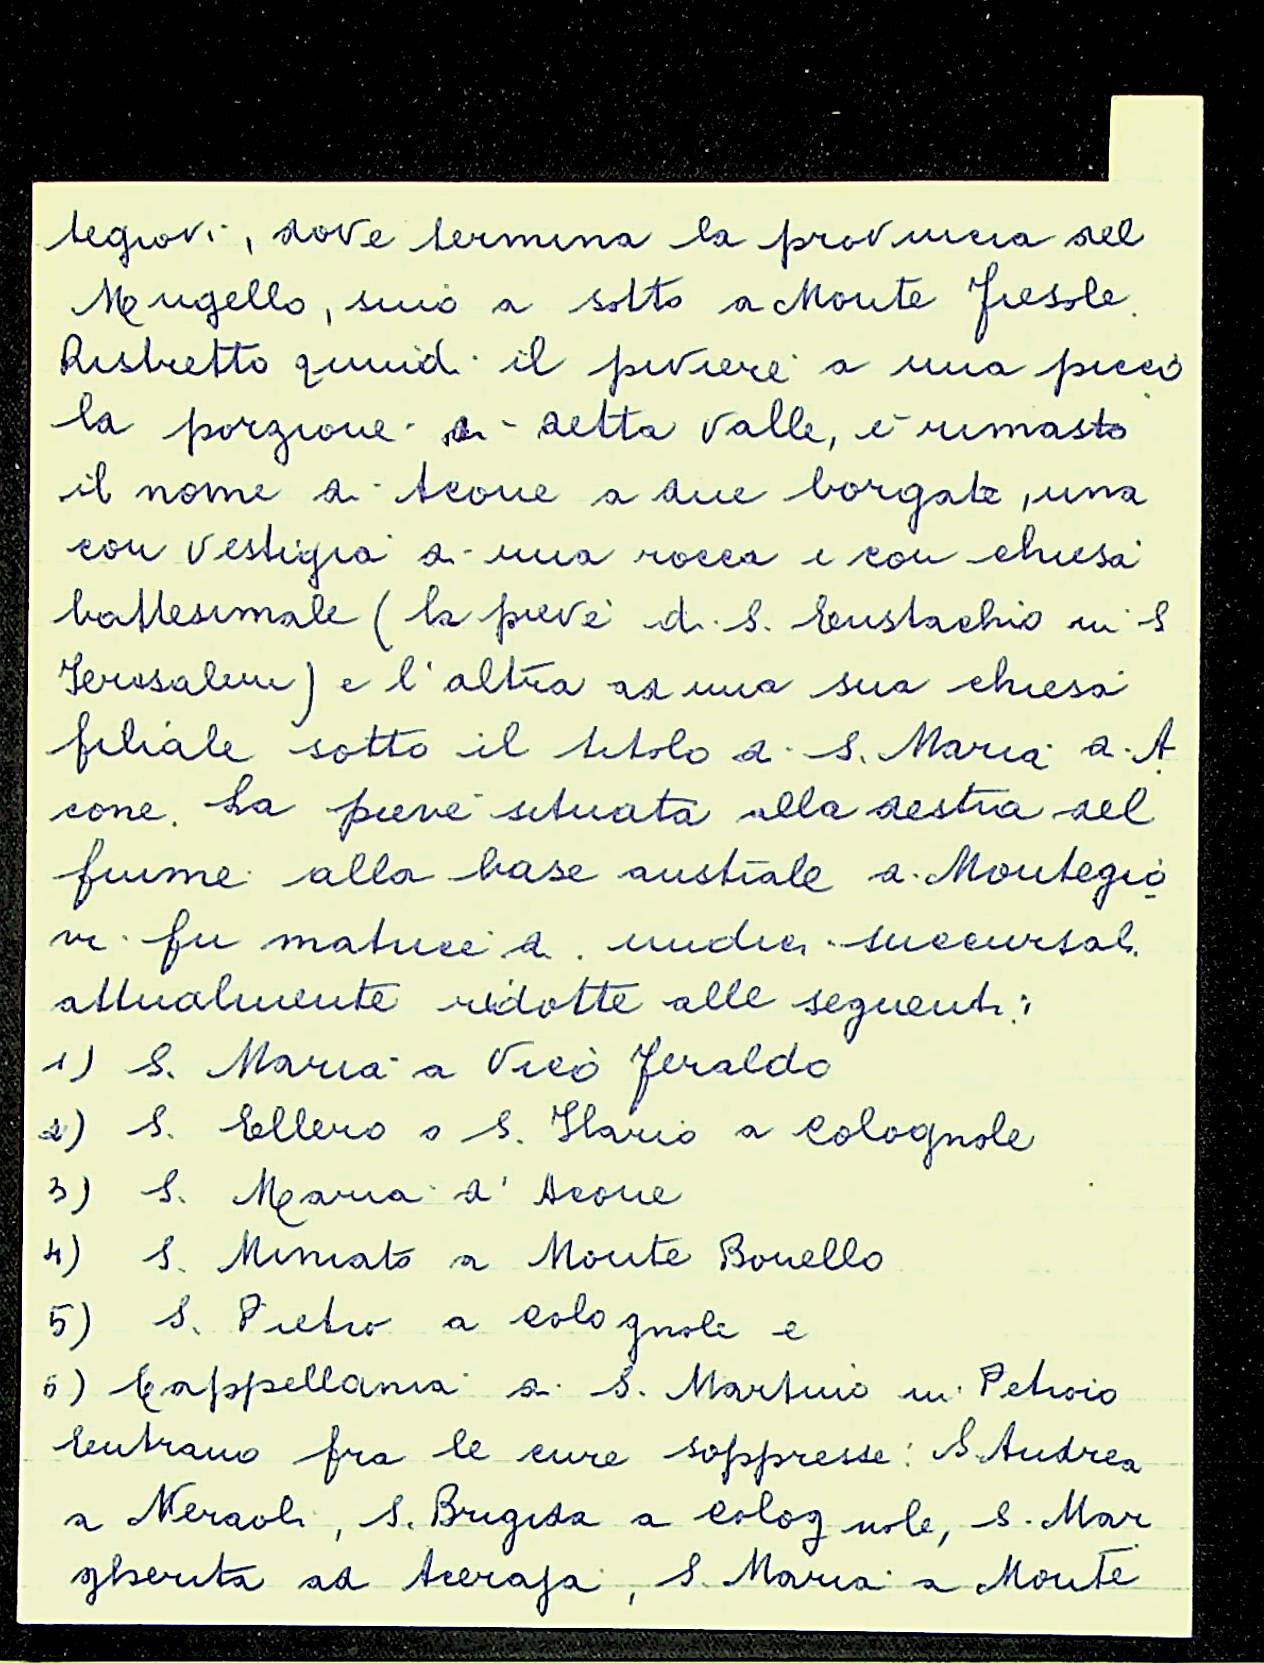 tegiovi, dove termina la provincia del
Mugello, sino a sotto a Monte Fiesole.
Ristretto quindi il piviere a una picco
la porzione di detta valle, è rimasto
il nome di Acone a due borgate, una
con vestigia di una rocca e con chiesa
battesimale (la pieve di S. Eustachio in S
Jerosalem) e l'altra ad una sua chiesa
filiale sotto il titolo di S. Maria di A
cone. La pieve situata alla destra del
fiume alla base australe di Montegio
vi fu matrice di undici succursali
attualmente ridotte alle seguenti:
1) S. Maria a Vico Feraldo
2) S. Ellero o S. Ilario a Colognole
3) S. Maria d'Acone
4) S. Miniato a Monte Bonello
5) S. Pietro a Colognole e
6) Cappellania di S. Martino in Petroio
Entrano fra le cure soppresse: S. Andrea
a Neraoli, S. Brigida a Colognole, S. Mar
gherita ad Aceraja, S. Maria a Monte